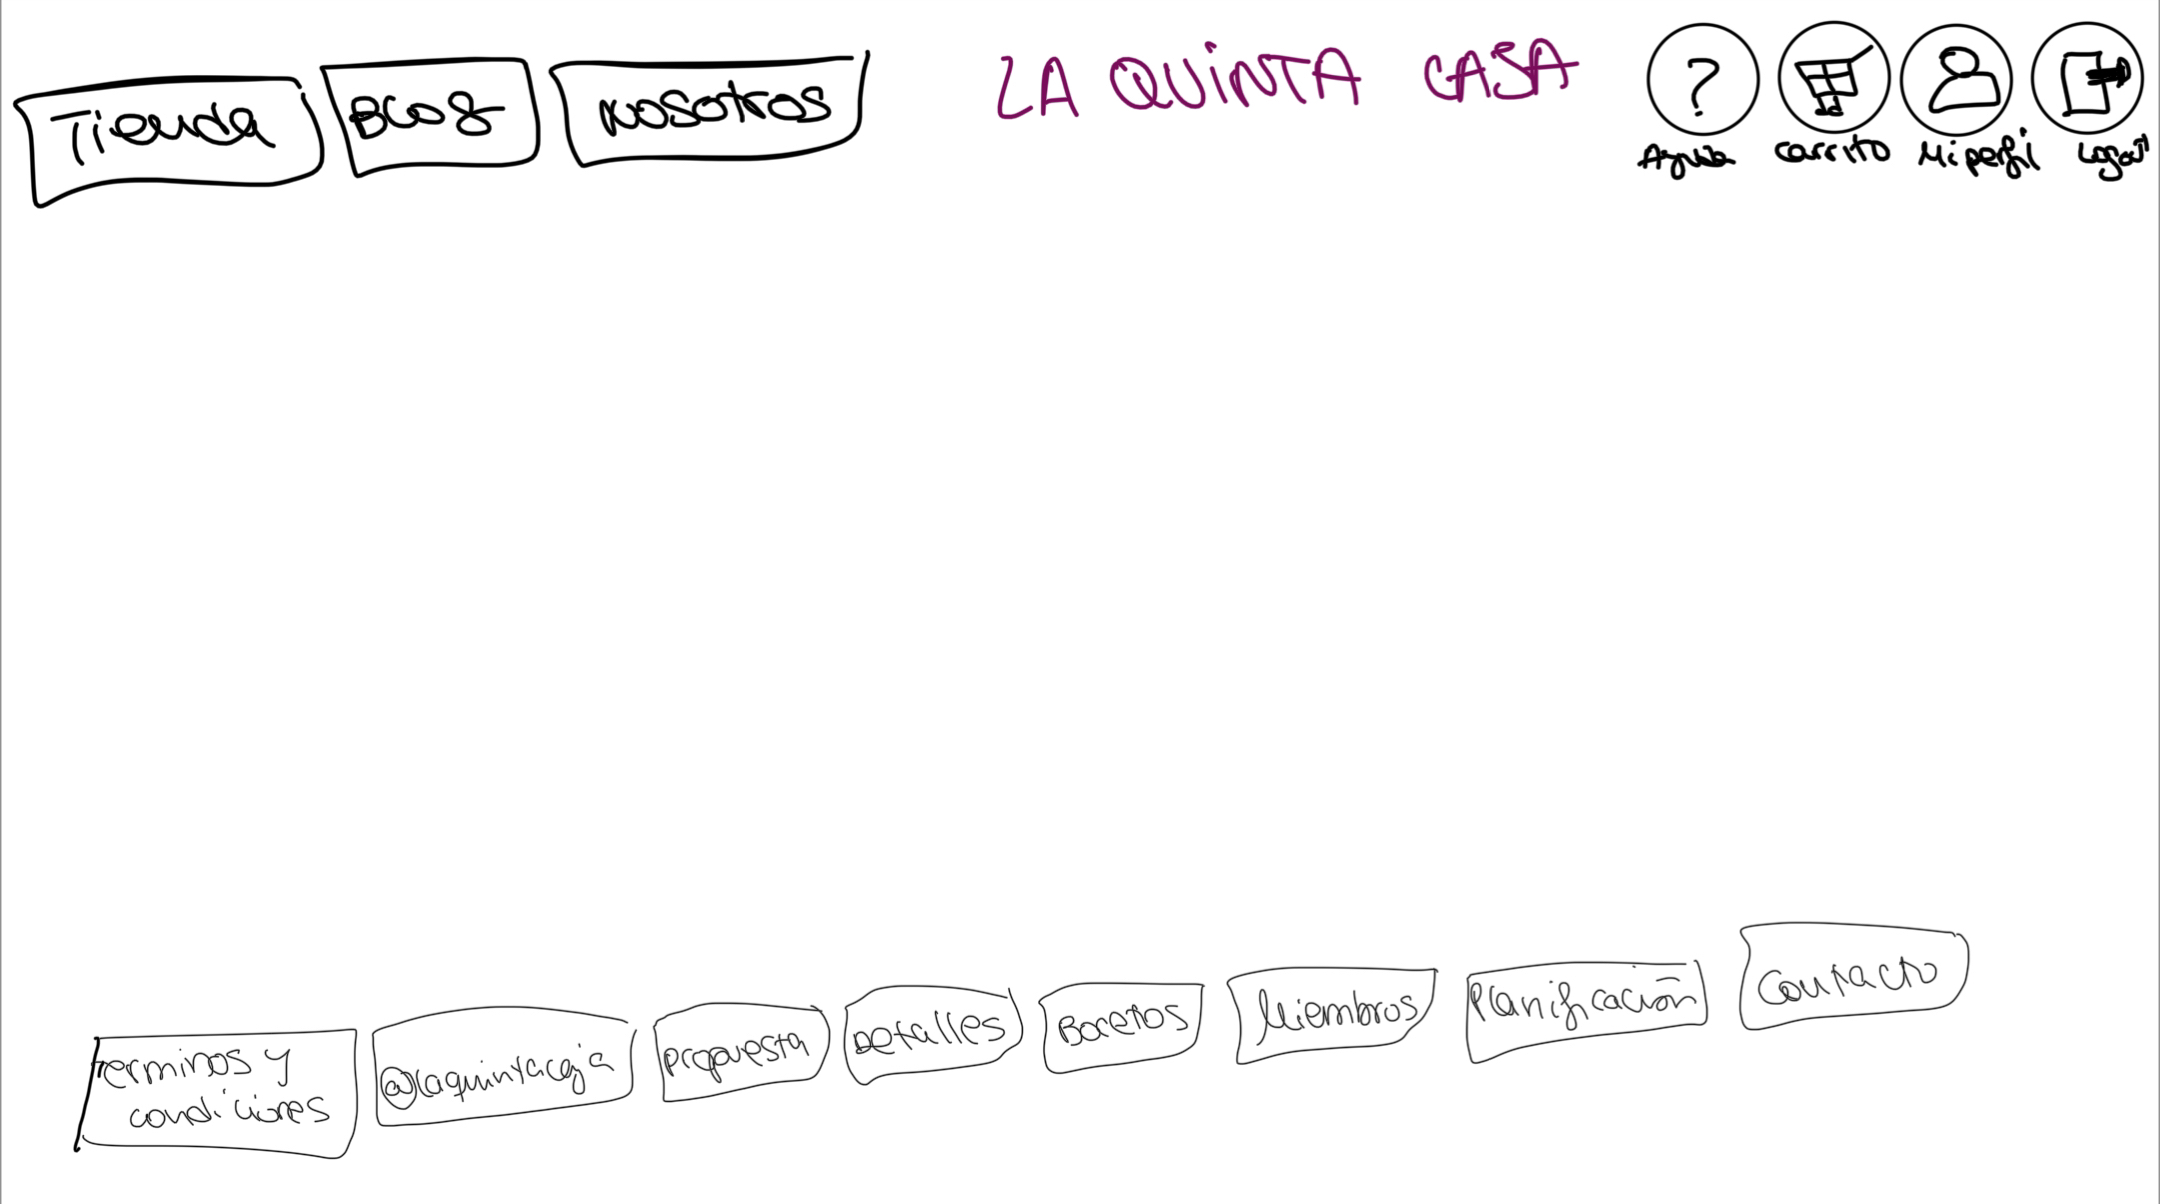 Tienda
Blog
Nosotros
LA QUINTA CAJA
?
Ayuda
carrito
Mi perfil
Logout
Terminos y
condiciones
@laquintacaja
propuesta
Detalles
Bocetos
Miembros
Planificación
Contacto